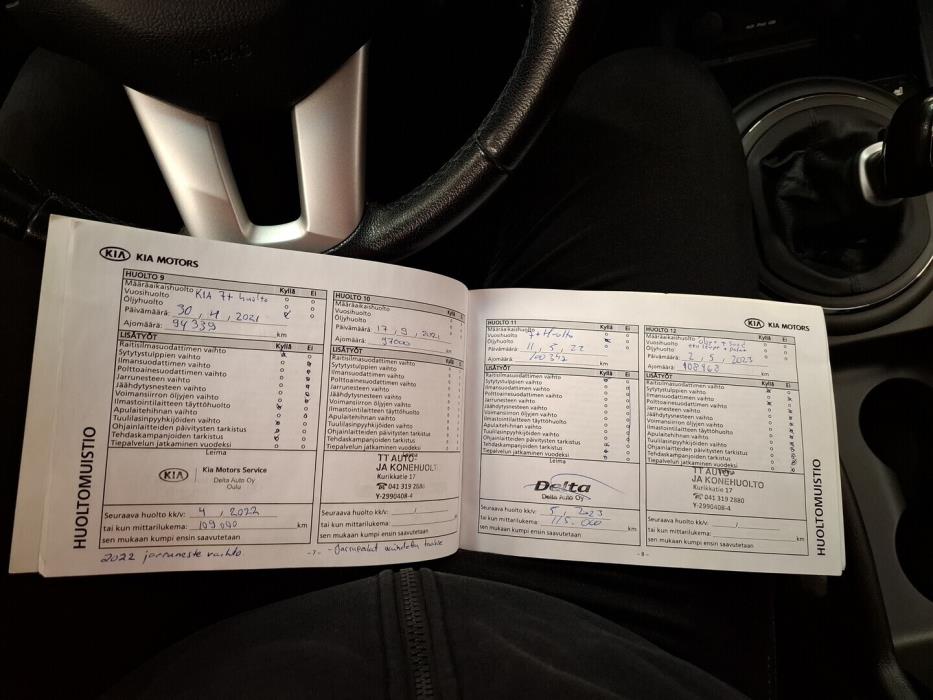 KIA MOTORS
HUOLTO 9
Kyllä Ei
Määräaikaishuolto
Vuosihuolto KIA 7+ huolto
Öljyhuolto
Päivämäärä: 30, 4, 2021
Ajomäärä: 94339 km
LISÄTYÖT Kyllä Ei
Raitisilmasuodattimen vaihto
Sytytystulppien vaihto
Ilmansuodattimen vaihto
Polttoainesuodattimen vaihto
Jarrunesteen vaihto
Jäähdytysnesteen vaihto
Voimansiirron öljyjen vaihto
Ilmastointilaitteen täyttöhuolto
Apulaitehihnan vaihto
Tuulilasinpyyhkijöiden vaihto
Ohjainlaitteiden päivitysten tarkistus
Tehdaskampanjoiden tarkistus
Tiepalvelun jatkaminen vuodeksi
Leima
KIA
Kia Motors Service
Delta Auto Oy
Oulu
Seuraava huolto kk/v: 4, 2022
tai kun mittarilukema: 109 000 km
sen mukaan kumpi ensin saavutetaan
2022 jarruneste vaihto
HUOLTOMUISTIO
HUOLTO 10
Kyllä Ei
Määräaikaishuolto
Vuosihuolto
Öljyhuolto
Päivämäärä: 17, 9, 2021
Ajomäärä: 97000 km
LISÄTYÖT Kyllä Ei
Raitisilmasuodattimen vaihto
Sytytystulppien vaihto
Ilmansuodattimen vaihto
Polttoainesuodattimen vaihto
Jarrunesteen vaihto
Jäähdytysnesteen vaihto
Voimansiirron öljyjen vaihto
Ilmastointilaitteen täyttöhuolto
Apulaitehihnan vaihto
Tuulilasinpyyhkijöiden vaihto
Ohjainlaitteiden päivitysten tarkistus
Tehdaskampanjoiden tarkistus
Tiepalvelun jatkaminen vuodeksi
Leima
TT AUTO-
JA KONEHUOLTO
Kurikkatie 17
☎ 041 319 2880
Y-2990408-4
Seuraava huolto kk/v: /
tai kun mittarilukema: km
sen mukaan kumpi ensin saavutetaan
- 7 -
HUOLTO 11
Kyllä Ei
Määräaikaishuolto
Vuosihuolto
Öljyhuolto
Päivämäärä: 11, 5, 22
Ajomäärä: 100342 km
LISÄTYÖT Kyllä Ei
Raitisilmasuodattimen vaihto
Sytytystulppien vaihto
Ilmansuodattimen vaihto
Polttoainesuodattimen vaihto
Jarrunesteen vaihto
Jäähdytysnesteen vaihto
Voimansiirron öljyjen vaihto
Ilmastointilaitteen täyttöhuolto
Apulaitehihnan vaihto
Tuulilasinpyyhkijöiden vaihto
Ohjainlaitteiden päivitysten tarkistus
Tehdaskampanjoiden tarkistus
Tiepalvelun jatkaminen vuodeksi
Leima
Delta
Delta Auto Oy
Seuraava huolto kk/v: 5, 2023
tai kun mittarilukema: 115.000 km
sen mukaan kumpi ensin saavutetaan
- 8 -
KIA MOTORS
HUOLTO 12
Kyllä Ei
Määräaikaishuolto
Vuosihuolto
Öljyhuolto
Päivämäärä: 2, 5, 2023
Ajomäärä: 108968 km
LISÄTYÖT Kyllä Ei
Raitisilmasuodattimen vaihto
Sytytystulppien vaihto
Ilmansuodattimen vaihto
Polttoainesuodattimen vaihto
Jarrunesteen vaihto
Jäähdytysnesteen vaihto
Voimansiirron öljyjen vaihto
Ilmastointilaitteen täyttöhuolto
Apulaitehihnan vaihto
Tuulilasinpyyhkijöiden vaihto
Ohjainlaitteiden päivitysten tarkistus
Tehdaskampanjoiden tarkistus
Tiepalvelun jatkaminen vuodeksi
Leima
TT AUTO-
JA KONEHUOLTO
Kurikkatie 17
☎ 041 319 2880
Y-2990408-4
Seuraava huolto kk/v: /
tai kun mittarilukema: km
sen mukaan kumpi ensin saavutetaan
HUOLTOMUISTIO